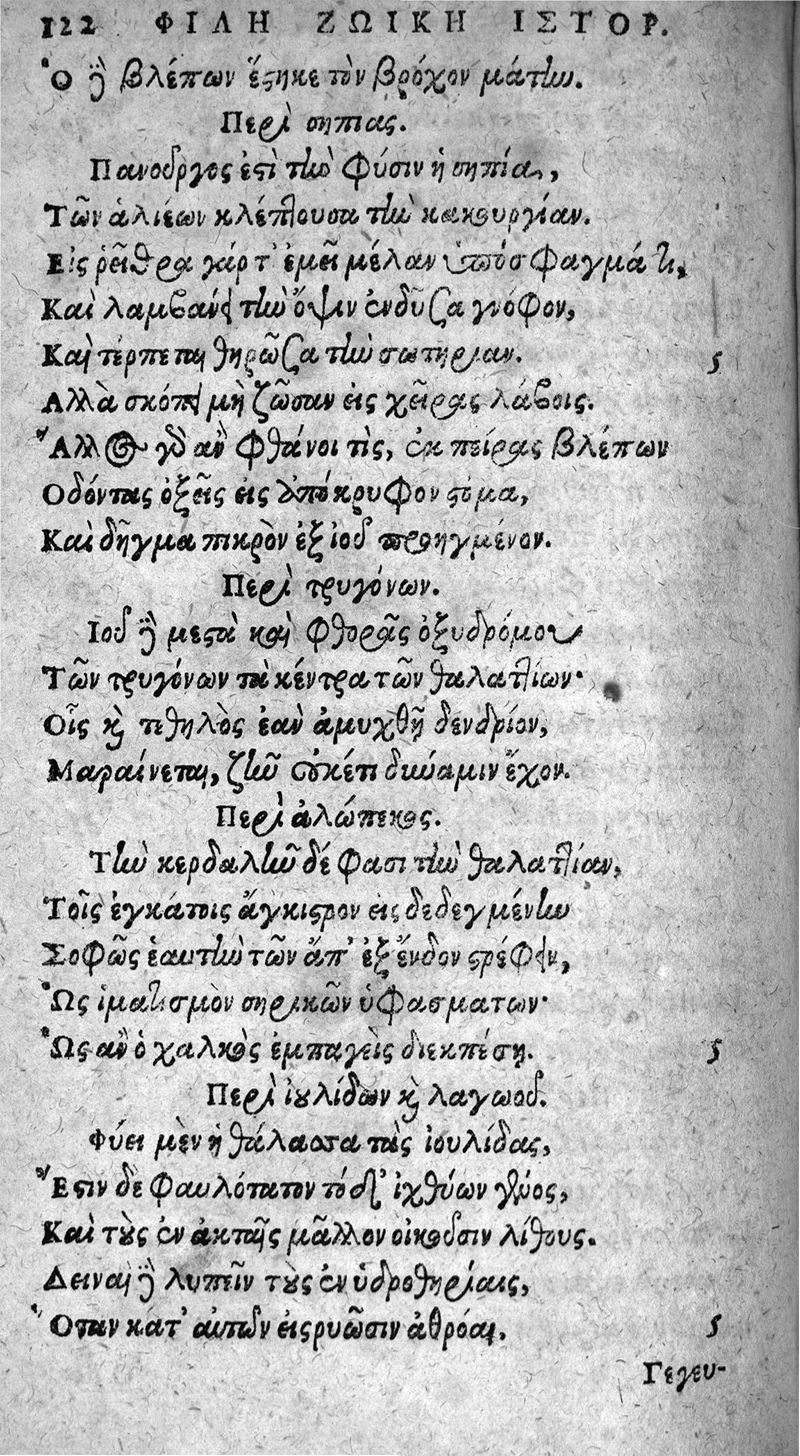 122 ΦΙΛΗ ΖΩΙΚΗ ΙΣΤΟΡ.
Ὁ δὲ βλέπων ἕστηκε τὸν βρόχον μάτην.
Περὶ σηπίας.
Πανοῦργος ἐστὶ τὴν φύσιν ἡ σηπία,
Τῶν ἁλιέων κλέπτουσα τὴν κακουργίαν.
Εἰς ῥεῖθρα γάρ τ' ἐμεῖ μέλαν ὑπόσφαγμά τι,
Καὶ λαμβάνει τὴν ὄψιν ἐνδῦσα γνόφον,
Καὶ τέρπεται θηρῶσα τὴν σωτηρίαν. 5
Ἀλλὰ σκόπει μὴ ζῶσαν εἰς χεῖρας λάβοις.
Ἄλλος γὰρ ἂν φθάνοι τὶς, ἐκ πείρας βλέπων
Ὀδόντας ὀξεῖς εἰς ἀπόκρυφον στόμα,
Καὶ δῆγμα πικρὸν ἐξ ἰοῦ προηγμένον.
Περὶ τρυγόνων.
Ἰοῦ δὲ μεστὰ καὶ φθορᾶς ὀξυδρόμου
Τῶν τρυγόνων τὰ κέντρα τῶν θαλαττίων·
Οἷς καὶ τιθηλὸς ἐὰν ἀμυχθῇ δενδρίον,
Μαραίνεται, ζῆν οὐκέτι δύναμιν ἔχον.
Περὶ ἀλώπεκος.
Τὴν κερδαλῆν δέ φασι τὴν θαλαττίαν,
Τοῖς ἐγκάτοις ἄγκιστρον εἰς δεδεγμένην
Σοφῶς ἑαυτὴν τῶν ἀπ' ἐξ ἔνδον στρέφειν,
Ὡς ἱματισμὸν σηρικῶν ὑφασμάτων·
Ὡς ἂν ὁ χαλκὸς ἐμπαγεὶς διεκπέσῃ. 5
Περὶ ἰουλίδων καὶ λαγωοῦ.
Φύει μὲν ἡ θάλασσα τὰς ἰουλίδας,
Ἔστιν δὲ φαυλότατον τόδ' ἰχθύων γένος,
Καὶ τοὺς ἐν ἀκταῖς μᾶλλον οἰκοῦσιν λίθους.
Δειναὶ δὲ λυπεῖν τοὺς ἐν ὑδροθηρίαις,
Ὅταν κατ' αὐτῶν εἰσρυῶσιν ἀθρόαι. 5
Γεγευ-